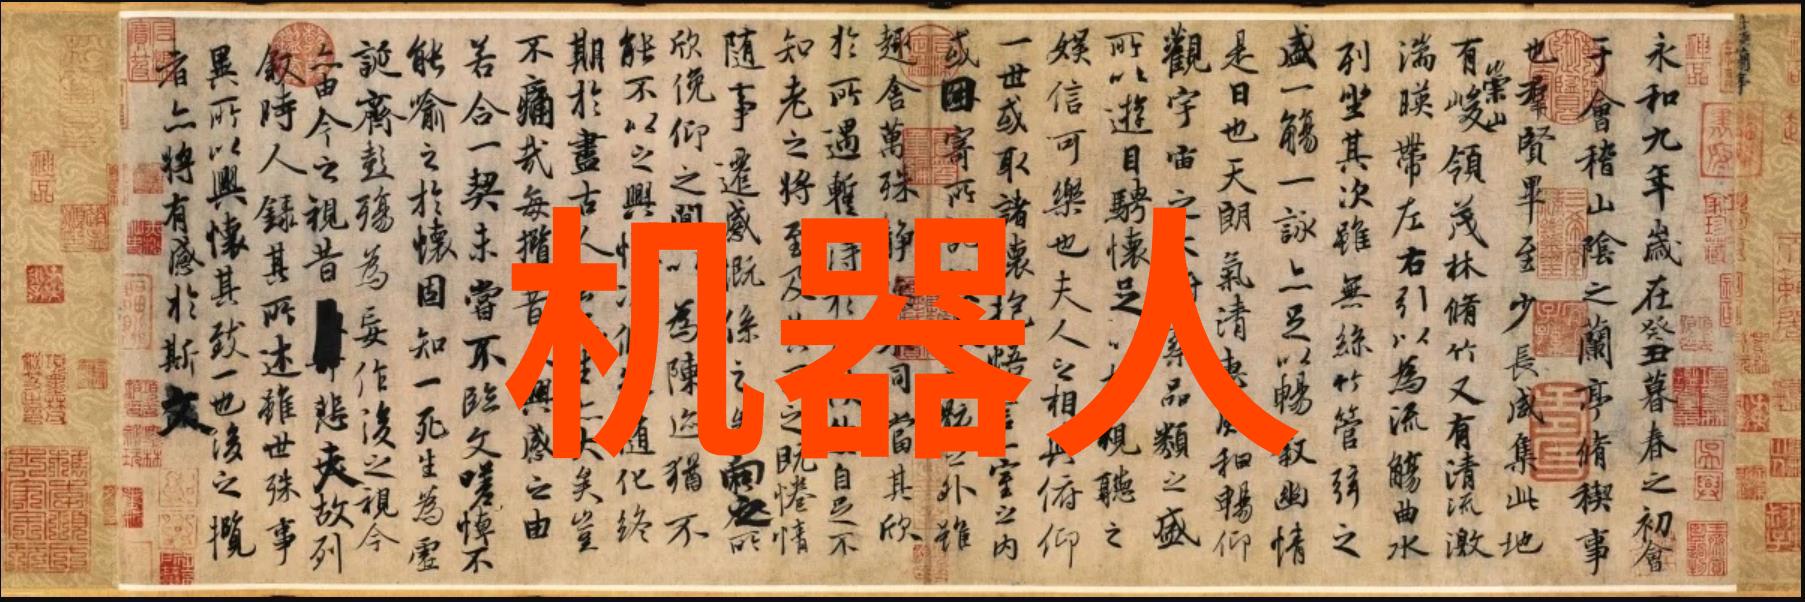 机器人
永和九年歲在癸丑暮春之初會
于會稽山陰之蘭亭脩稧事
也羣賢畢至少長咸集此地
有崇山峻領茂林脩竹又有清流激
湍暎帶左右引以為流觴曲水
列坐其次雖無絲竹管弦之
盛一觴一詠亦足以暢敘幽情
是日也天朗氣清惠風和暢仰
觀宇宙之品類之盛
所以遊目騁懷足以視聽之
娛信可樂也夫人之相與俯仰
一世或取諸懷抱悟言一室之內
或因寄所之外雖
趣舍萬殊静不同當其欣
於所遇暫得於自足不
知老之將至及其之既惓情
隨事遷感慨係之矣向之所
欣俛仰之間以為陳迹猶不
能不以之興懷況隨化終
期於盡古人生亦大矣豈
不痛哉每攬昔人興感之由
若合一契未嘗不臨文嗟悼不
能喻之於懷固知一死生為虛
誕齊彭殤為妄作後之視今
亦由今之視昔悲夫故列
敘時人錄其所述雖世殊事
異所以興懷其致一也後之攬
者亦將有感於斯文